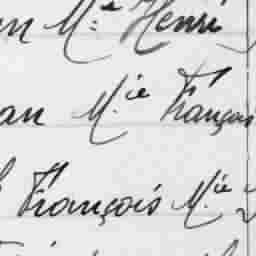 M.e Henri
an M.ie François
François M.ie